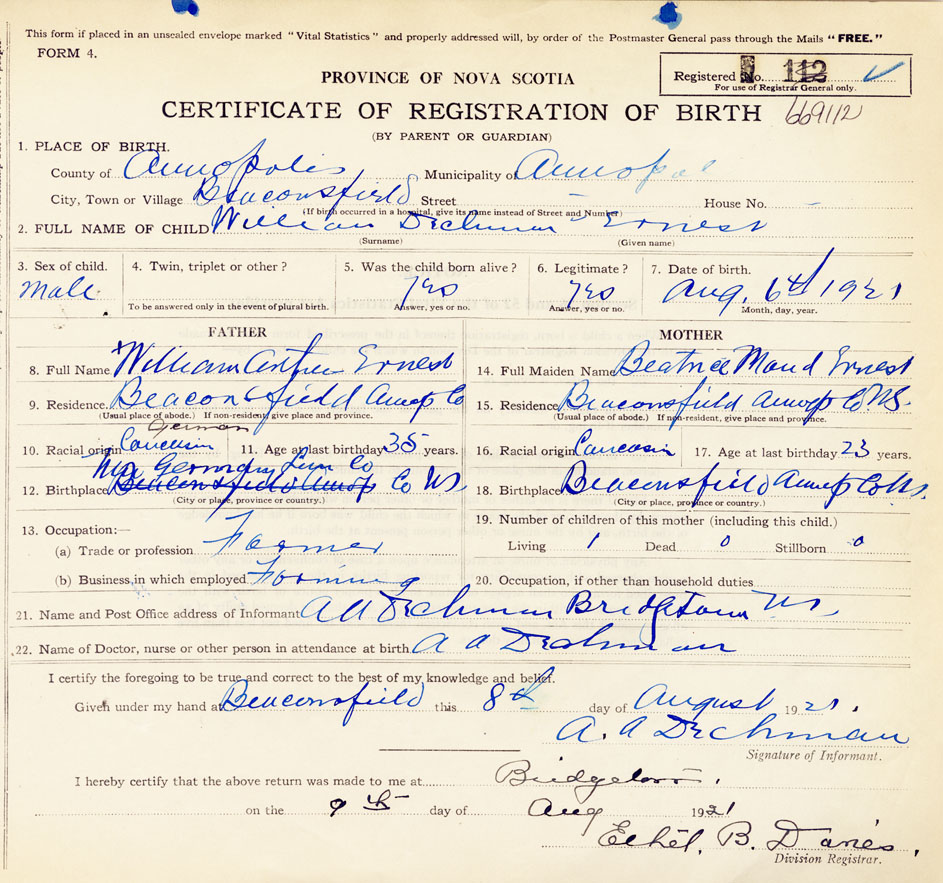 This form if placed in an unsealed envelope marked "Vital Statistics" and properly addressed will, by order of the Postmaster General pass through the Mails "FREE."
FORM 4.
PROVINCE OF NOVA SCOTIA
Registered No. 112
For use of Registrar General only.
CERTIFICATE OF REGISTRATION OF BIRTH 669112
(BY PARENT OR GUARDIAN)
1. PLACE OF BIRTH.
County of Annapolis Municipality of Annapol
City, Town or Village Beaconsfield Street – House No. –
(If birth occurred in a hospital, give its name instead of Street and Number)
2. FULL NAME OF CHILD William Dechman Ernest
(Surname) (Given name)
3. Sex of child. 4. Twin, triplet or other? 5. Was the child born alive? 6. Legitimate? 7. Date of birth.
Male yes yes Aug, 6th 1921
To be answered only in the event of plural birth. Answer, yes or no. Answer, yes or no. Month, day, year.
FATHER MOTHER
8. Full Name William Arthur Ernest 14. Full Maiden Name Beatrice Maud Ernest
9. Residence Beaconsfield Annap Co 15. Residence Beaconsfield Annap Co NS.
(Usual place of abode.) If non-resident, give place and province. (Usual place of abode.) If non-resident, give place and province.
German
10. Racial origin Caucasin 11. Age at last birthday 35 years. 16. Racial origin Caucasin 17. Age at last birthday 23 years.
New Germany Lun Co
12. Birthplace Beaconsfield Annap Co NS 18. Birthplace Beaconsfield Annap Co Ns.
(City or place, province or country.) (City or place, province or country.)
13. Occupation:— 19. Number of children of this mother (including this child.)
(a) Trade or profession Farmer Living 1 Dead 0 Stillborn 0
(b) Business in which employed Farming 20. Occupation, if other than household duties
21. Name and Post Office address of Informant A A Dechman Bridgetown NS,
22. Name of Doctor, nurse or other person in attendance at birth A A Dechman
I certify the foregoing to be true and correct to the best of my knowledge and belief.
Given under my hand at Beaconsfield this 8th day of August 1921.
A. A Dechman
Signature of Informant.
I hereby certify that the above return was made to me at Bridgetown.
on the 9th day of Aug 1921
Ethel. B. Davies,
Division Registrar.